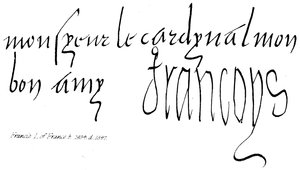 monsyeur le cardynal mon
bon amy francoys
Francis I, of France b. 1494 d. 1547